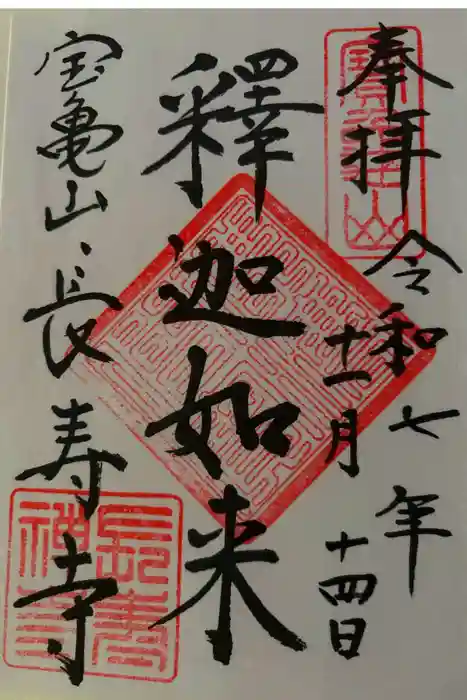 奉拝
令和七年
十一月十四日
釋迦如来
宝亀山、長寿寺
寶龜山
長壽禅寺